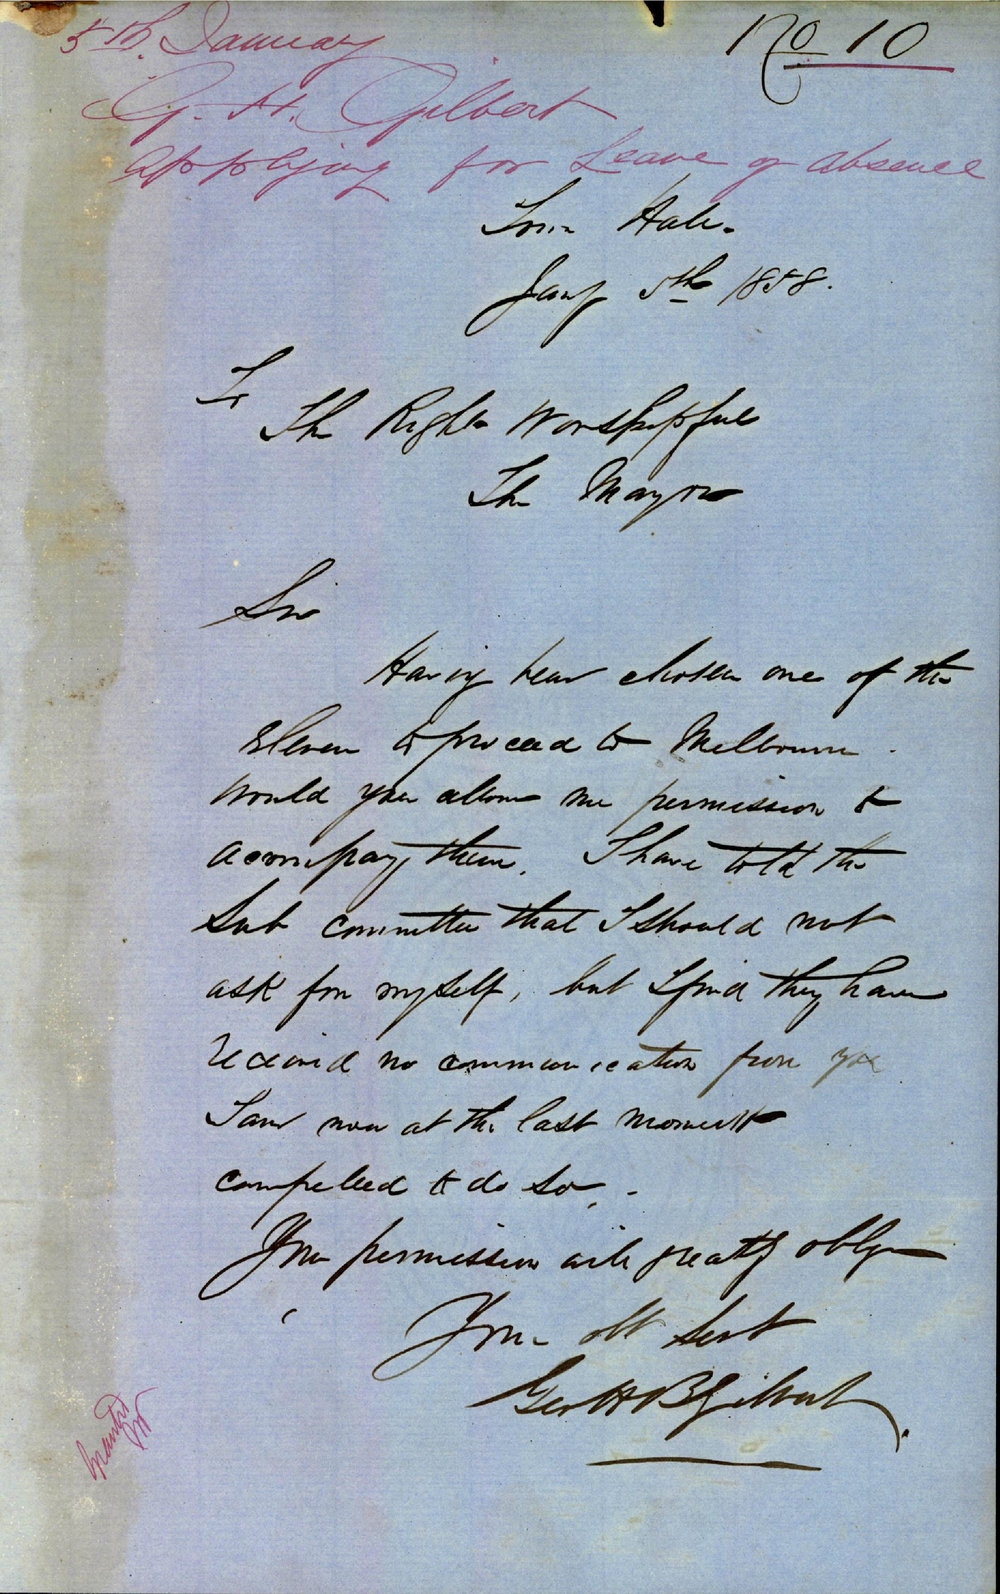 5th. January
No 10
G. H. Gilbert
applying for Leave of absence
Town Hall.
Jany 5th 1858.
To
The Right Worshipful
The Mayor
Sir
Having been chosen one of the
Eleven to proceed to Melbourne.
Would you allow me permission to
acompany them. I have told the
Sub committee that I should not
ask for myself, but I find they have
received no communication from you
I am now at the last moment
compelled to do so.
Your permission will greatly oblige
Your obt Servt
Geo H B Gilbert.
Granted